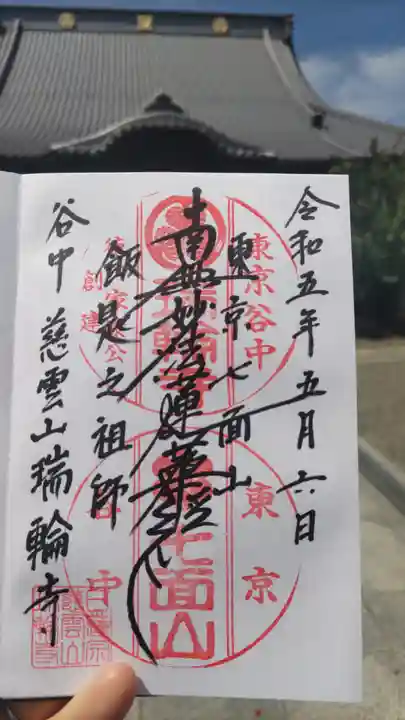 令和五年五月六日
東京七面山
南無妙法蓮華経
飯匙之祖師
谷中 慈雲山瑞輪寺
東京谷中
瑞輪寺
創建
公
東京
谷中
七面山